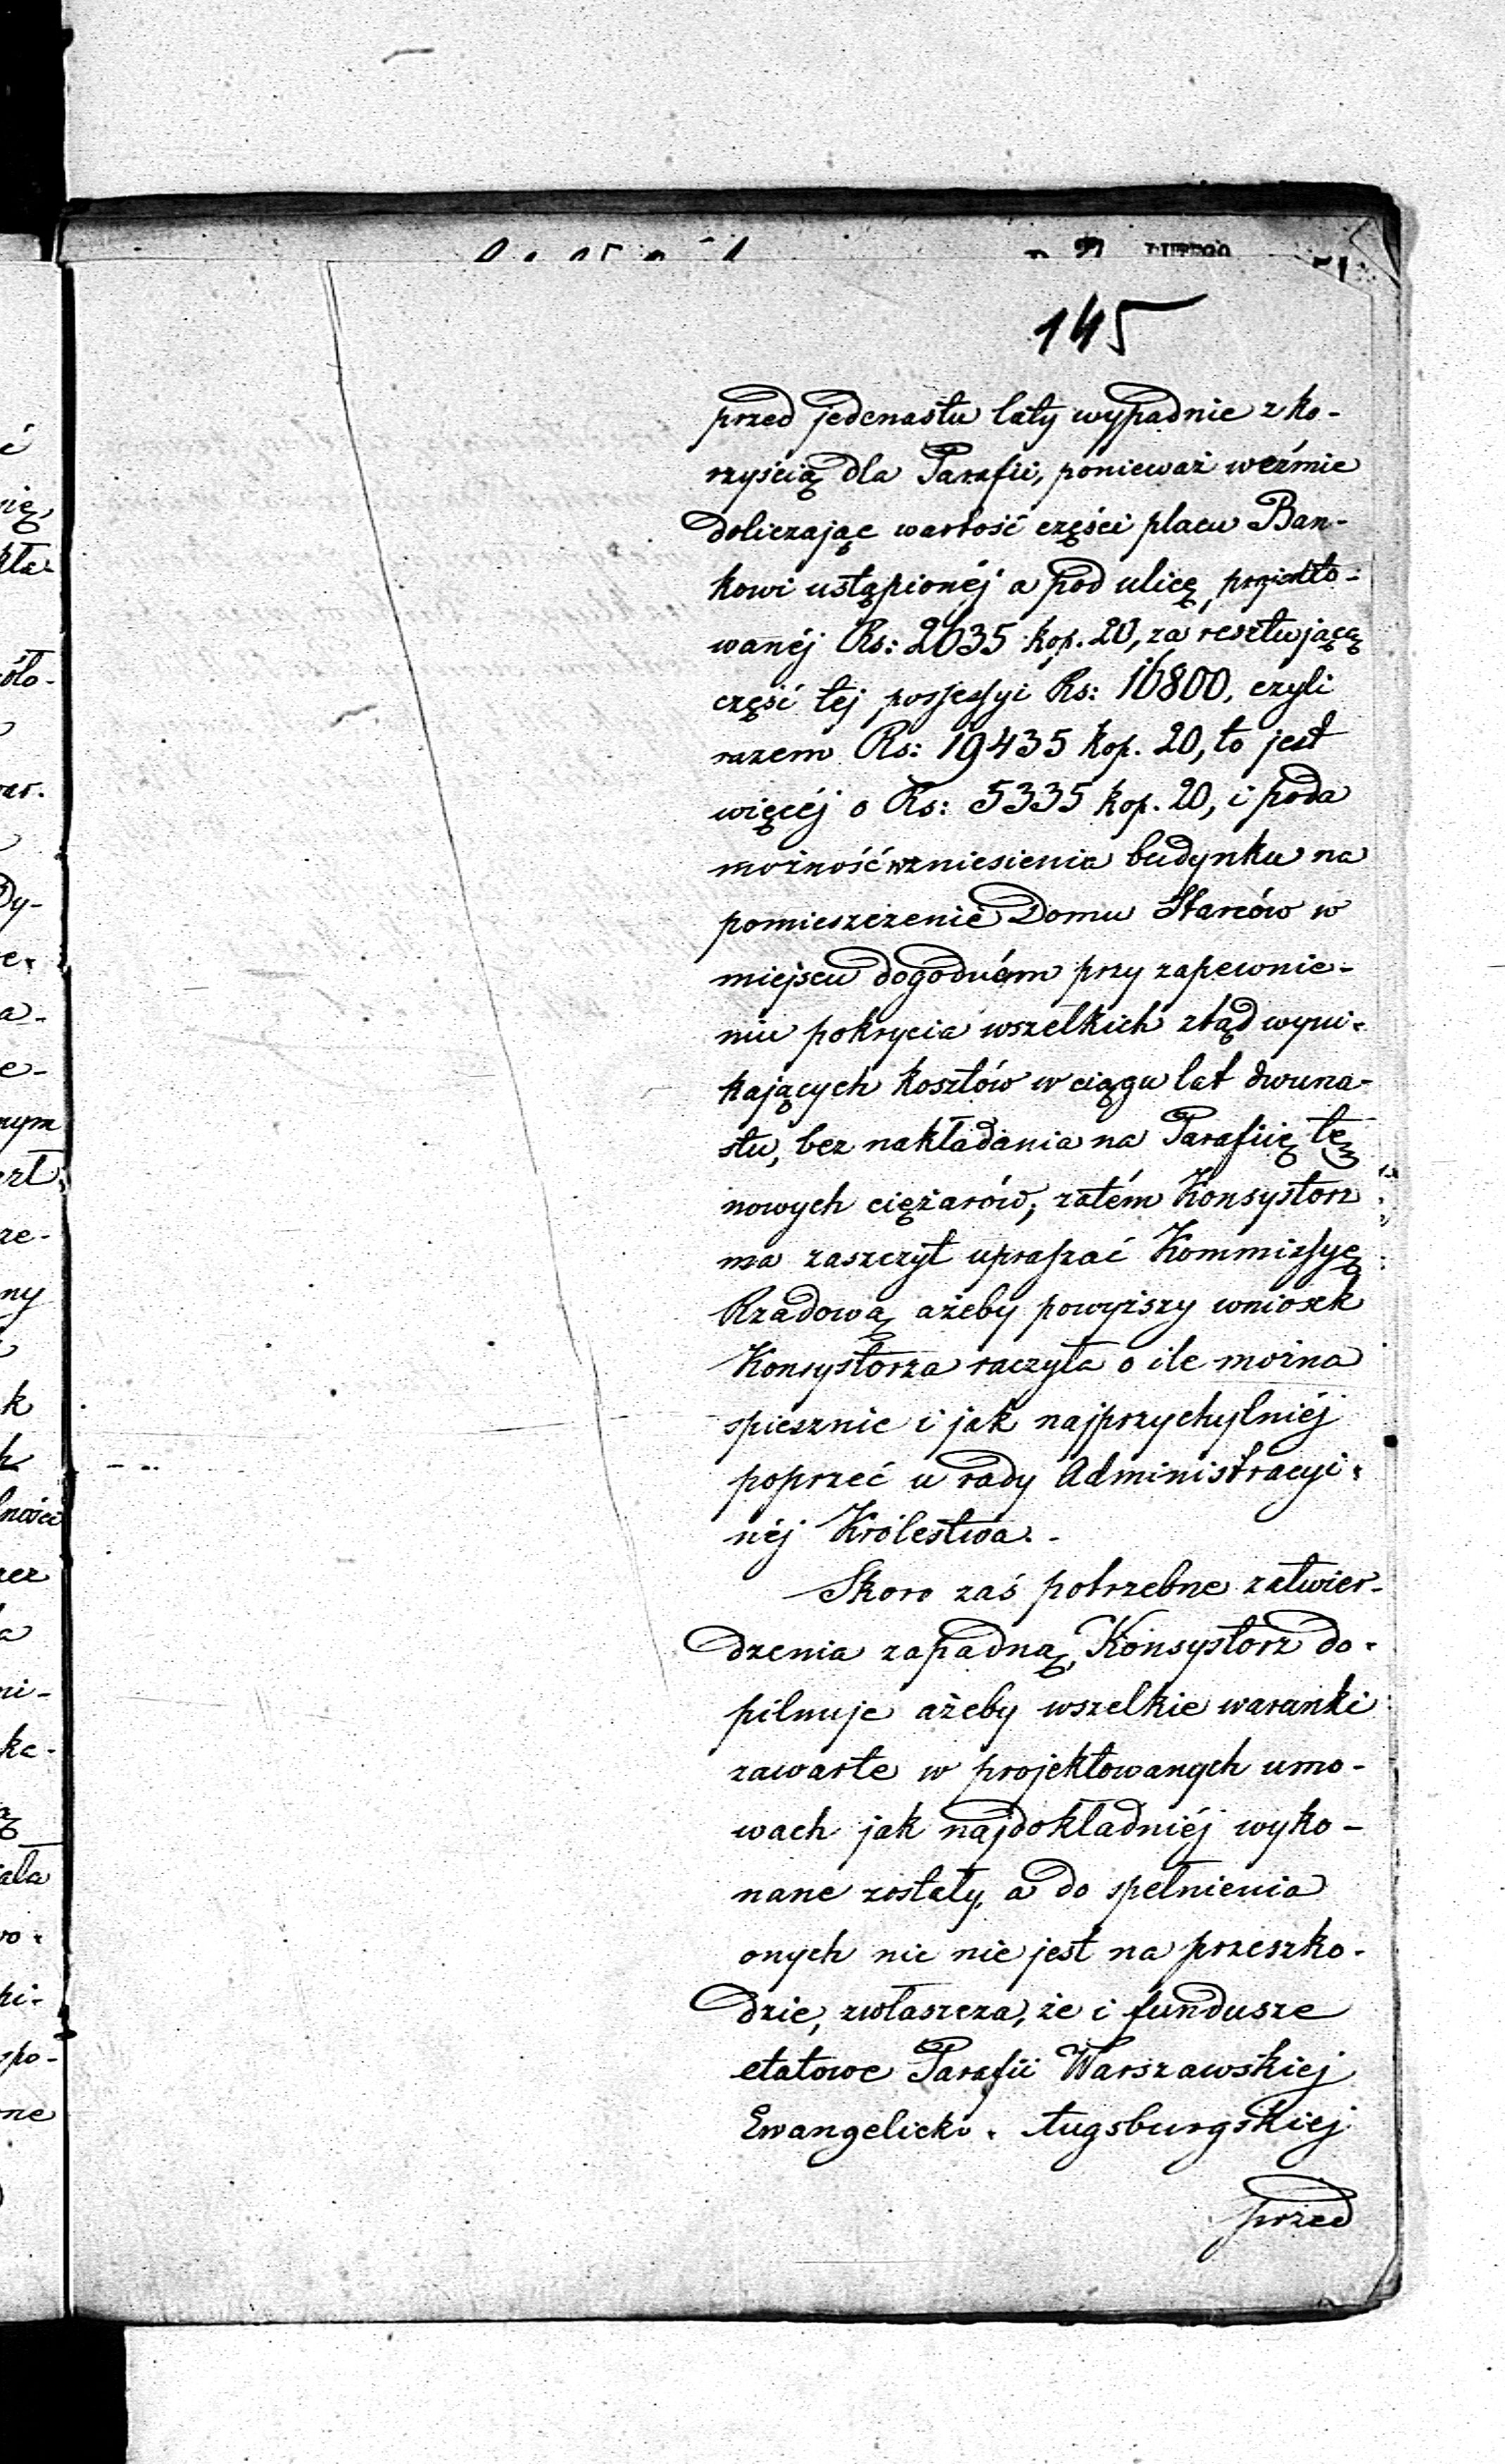 145
przed jedenastu laty wypadnie z ko-
rzyścią dla Parafii, ponieważ weźmie
doliczając wartość części placu Ban-
kowi ustąpionéj a pod ulicę projekto-
wanéj Rs: 2635 kop. 20, za resztującą
część tej possessyi Rs: 16800, czyli
razem Rs: 19435 kop. 20, to jest
więcéj o Rs: 5335 kop. 20, i poda
możność wzniesienia budynku na
pomieszczenie Domu Starców w
miejscu dogodném przy zapewnie-
niu pokrycia wszelkich ztąd wyni-
kających kosztów w ciągu lat dwuna-
stu, bez nakładania na Parafiię tę
nowych ciężarów; zatém Konsystorz
ma zaszczyt upraszać Kommissyę
Rządową ażeby powyższy wniosek
Konsystorza raczyła o ile można
spiesznie i jak najprzychylniéj
poprzeć u rady Administracyi-
néj Królestwa.-
Skoro zaś potrzebne zatwier-
dzenia zapadną, Konsystorz do-
pilnuje ażeby wszelkie warunki
zawarte w projektowanych umo-
wach jak najdokładniéj wyko-
nane zostały, a do spełnienia
onych nic nie jest na przeszko-
dzie, zwłaszcza, że i fundusze
etatowe Parafii Warszawskiej
Ewangelicko-Augsburgskiej
przed